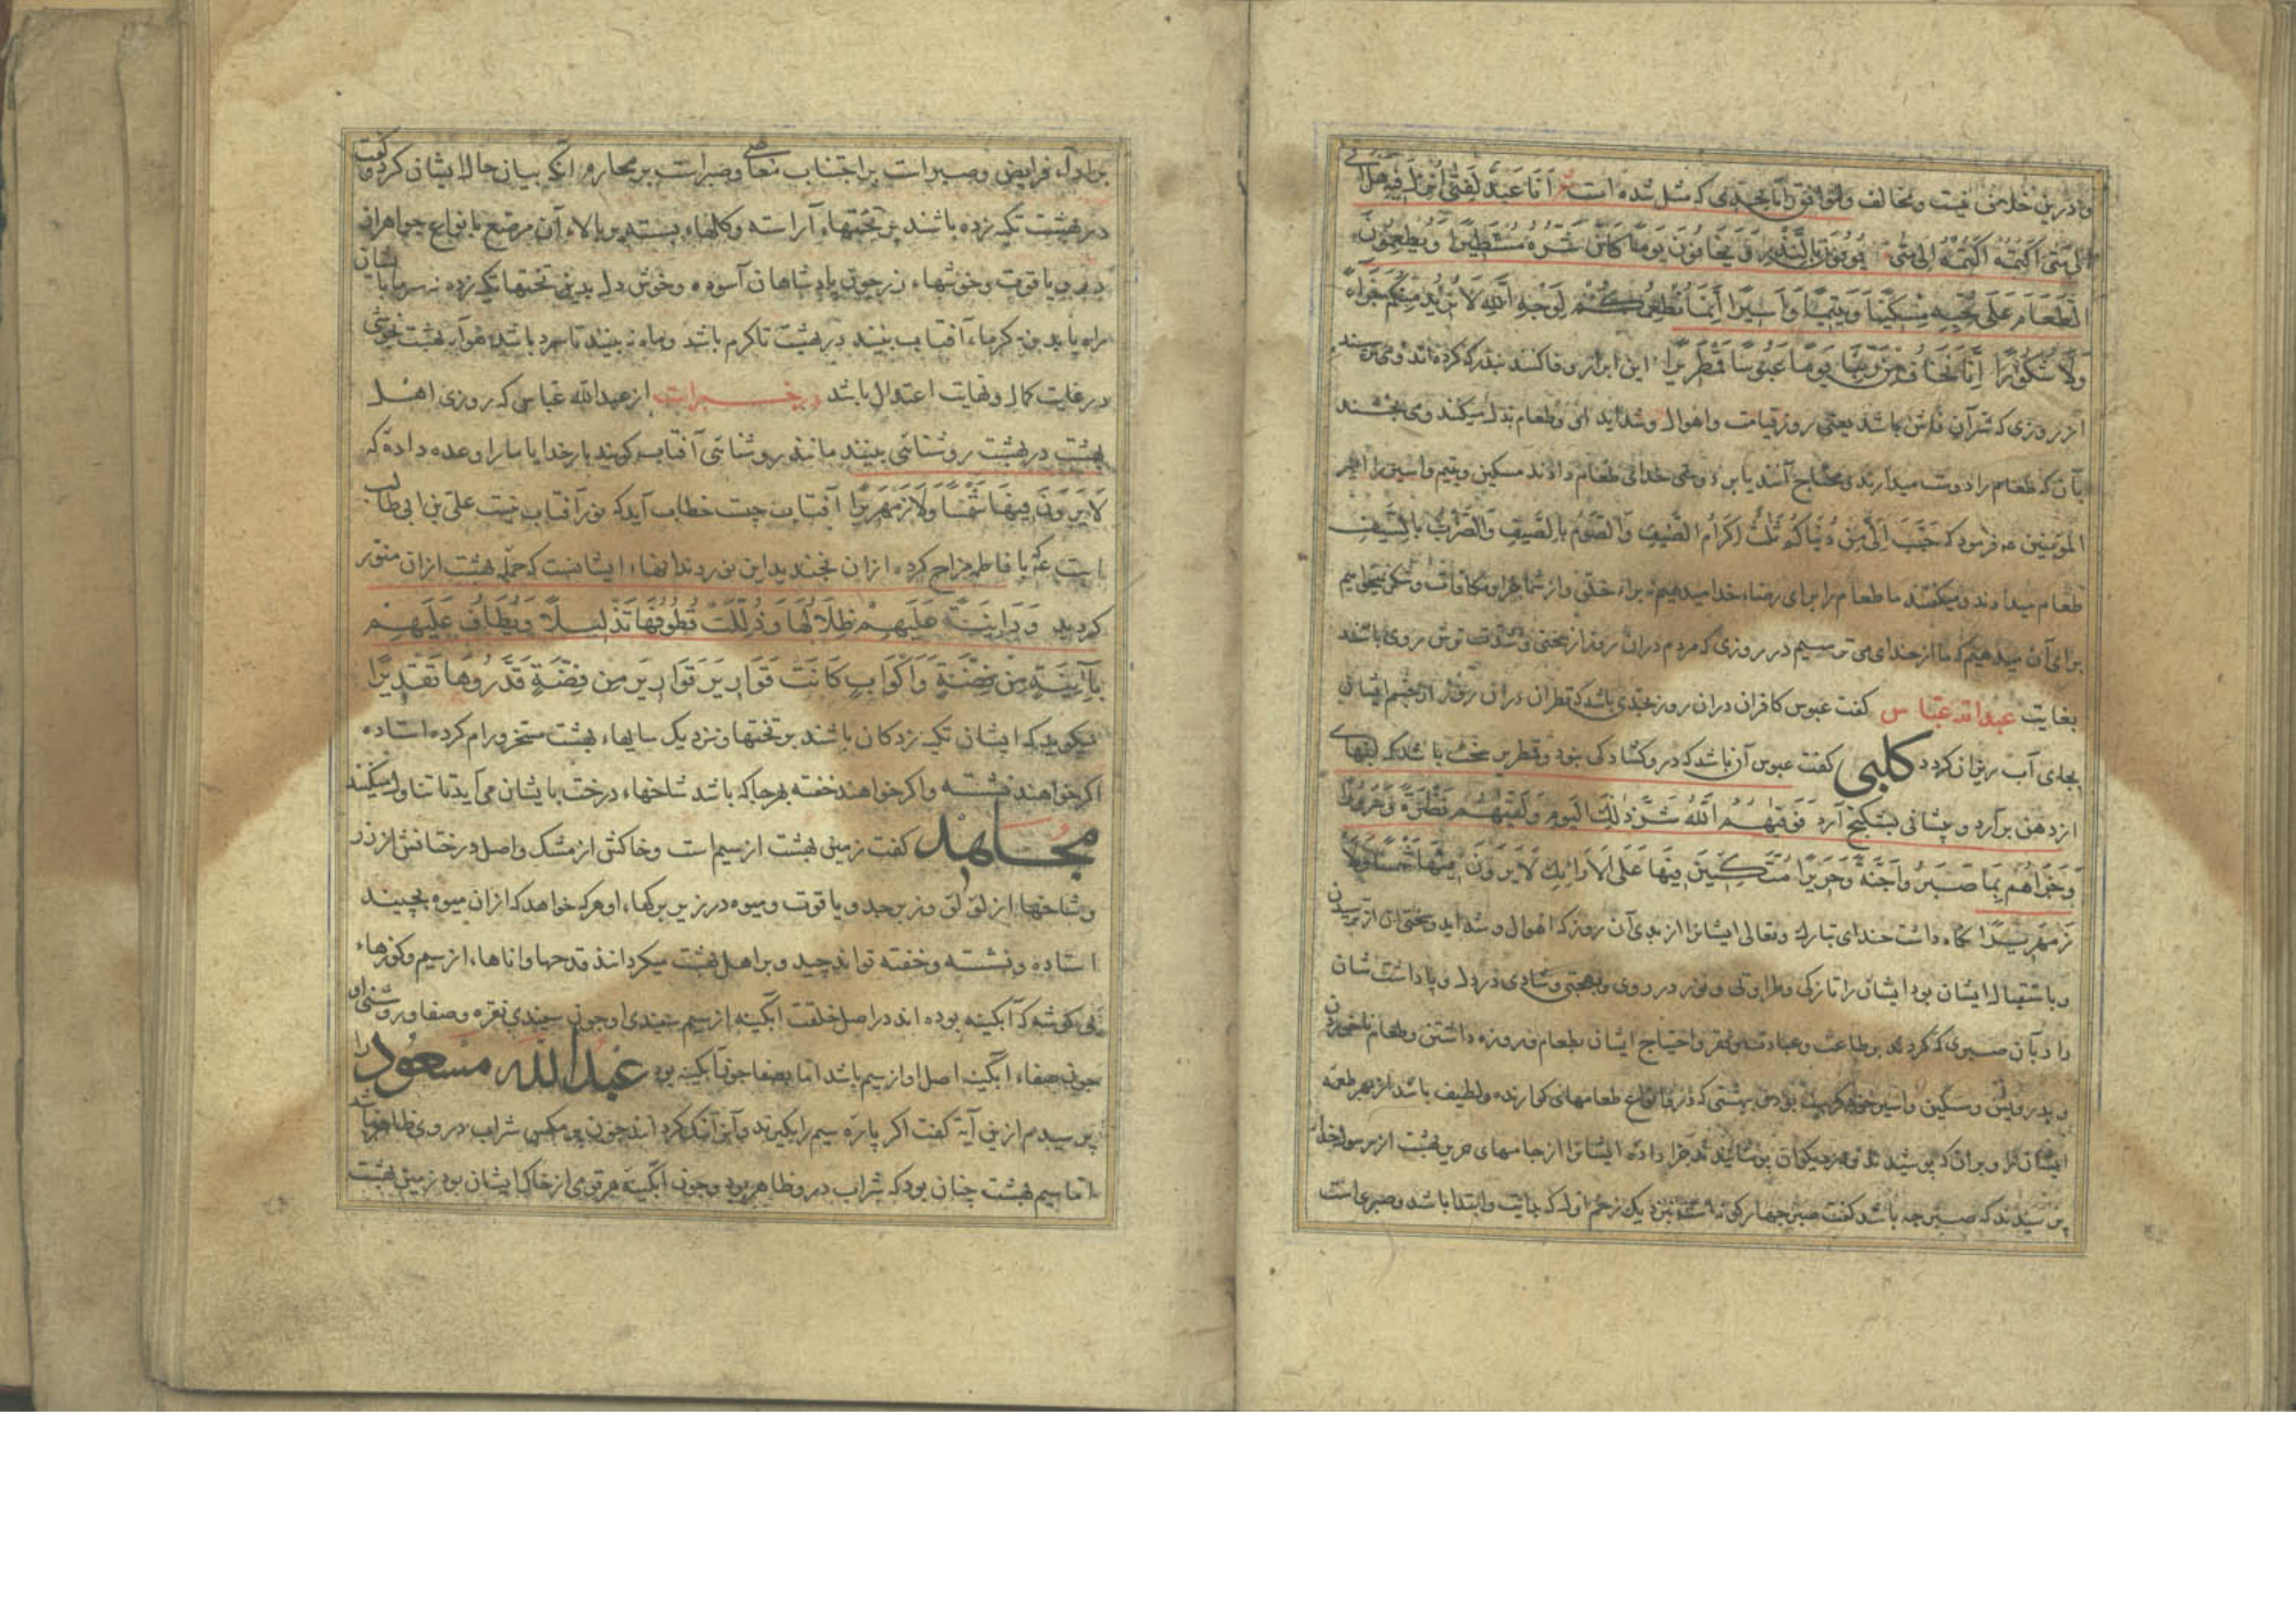 وادرین خلافی نیست ومخالف وموافق که مثل شده است انا عبد لفتی انزل فیه هل اتی
الی متی اکتمه اکتمه الی متی یُوفُونَ بِالنَّذْرِ وَیَخَافُونَ یَوْمًا کَانَ شَرُّهُ مُسْتَطِیرًا وَیُطْعِمُونَ
الطَّعَامَ عَلَی حُبِّهِ مِسْکِینًا وَیَتِیمًا وَأَسِیرًا إِنَّمَا نُطْعِمُکُمْ لِوَجْهِ اللَّهِ لَا نُرِیدُ مِنْکُمْ جَزَاءً
وَلَا شُکُورًا إِنَّا نَخَافُ مِنْ رَبِّنَا یَوْمًا عَبُوسًا قَمْطَرِیرًا این ابرار وفا کنند بنذر که کرده اند ومی ترسند
از روزی که شر آن فاش باشد یعنی روز قیامت واهوال وشداید او وطعام بذل میکنند ومی بخشند
بآن که طعام را دوست میدارند برای خدای طعام دادند مسکین ویتیم واسیر را امیر
المؤمنین عم فرمود که حُبِّبَ اِلَیَّ مِنْ دُنْیَاکُمْ ثَلثٌ اِکْرَامُ الضَّیْفِ وَالصَّوْمُ بِالصَّیْفِ وَالضَّرْبُ بِالسَّیْفِ
طعام میدادند ومیکفتند ما طعام را برای رضاء خدا میدهیم نه براء خلق واز شما جزا ومکافات وشکر نمیخواهیم
برای آن میدهیم که ما از خدای می ترسیم در روزی که مردم دران روز از سختی وشدت ترش روی باشند
بغایت عبدالله عباس کفت عبوس کافران دران روز بحدی باشد که قطران دران روز از چشم ایشان
بجای آب ریزان کردد کلبی کفت عبوس آن باشد که درو کشادکی نبود وقمطریر سخت باشد که لبهای
از دهن برآرد وپیشانی بشکنج آرد فَوَقَیهُمُ اللَّهُ شَرَّ ذلِکَ الْیَوْمِ وَلَقَّیهُمْ نَضْرَةً وَسُرُورًا
وَجَزَاهُم بِمَا صَبَرُوا جَنَّةً وَحَرِیرًا مُتَّکِئِینَ فِیهَا عَلَی الْأَرَائِکِ لَا یَرَوْنَ فِیهَا شَمْسًا وَلَا
زَمْهَرِیرًا نکاه داشت خدای تبارک وتعالی ایشانرا از بدی آن روز که اهوال وشداید وسختی آن از ترسیدن
وباستقبال ایشان بود ایشان را تازکی وطراوتی ونور در روی وبهجتی وشادی در دل وپاداشت شان
داد بآن صبری که کردند بر طاعت وعبادت وفقر واحتیاج ایشان بطعام وروزه داشتن وطعام ناخوردن
وبدرویش ومسکین واسیر بهشتی که درو انواع طعامهای کوارنده ولطیف باشد از بهر طعمه
ایشانرا وبران که پوشیدند جزا داده ایشانرا از جامهای حریر بهشت از رسول خدا
پرسیدند که صبر چه باشد کفت صبر چهار نزدیک زخم اول که بدایت وابتدا باشد وصبری است
بر ادآء فرایض وصبر است بر اجتناب معاصی وصبر است بر مکاره آنکه بیان حال ایشان کرد وکفت
در بهشت تکیه زده باشند بر تختهاء آراسته وکلهاء بسته بر بالاء آن مرصع بانواع جواهر از
در ویاقوت وخوشهاء زر چون پادشاهان آسوده وخوش دل بدین تختها تکیه زده نه سرما بایشان
راه یابد ونه کرما، آفتاب نبینند در بهشت تا کرم باشد وماه نه بینند تا سرد باشد هواء بهشت بخوشی
در غایت کمال ونهایت اعتدال باشد در خبرست از عبدالله عباس که روزی اهل
بهشت در بهشت روشنائی بینند مانند روشنائی آفتاب کویند بار خدایا ما را وعده داده که
لَا یَرَوْنَ فِیهَا شَمْسًا وَلَا زَمْهَرِیرًا آفتاب چیست خطاب آید که نور آفتاب نیست علی بن ابی طالب
است که با فاطمه مزاح کرده ازان بخندید این نور دندانهاء ایشانست که جمله بهشت ازان منور
کردید وَدَانِیَةً عَلَیْهِمْ ظِلَالُهَا وَذُلِّلَتْ قُطُوفُهَا تَذْلِیلًا وَیُطَافُ عَلَیْهِمْ
بِآنِیَةٍ مِنْ فِضَّةٍ وَأَکْوَابٍ کَانَتْ قَوَارِیرَ قَوَارِیرَ مِن فِضَّةٍ قَدَّرُوهَا تَقْدِیرًا
میکوید که ایشان تکیه زدکان باشند بر تختها ونزدیک سایهاء بهشت مسخر ورام کرده استاده
اکر خواهند نشسته واکر خواهند خفته بهر جا که باشد شاخهاء درخت بایشان می آید تا تناول میکنند
مجاهد کفت زمین بهشت از سیم است وخاکش از مشک واصل درختانش از زر
وشاخها از لؤلؤ وزبرجد ویاقوت ومیوه در زیر برکها، او هر که خواهد که ازان میوه بچیند
استاده ونشسته وخفته تواند چید وبر اهل بهشت میکردانند قدحها واناها، از سیم وکوزهاء
بی کوشه که آبکینه بوده اند در اصل خلقت آبکینه از سیم سپیدی او چون سپیدی نقره وصفا وروشنی او
چون صفاء آبکینه اصل او از سیم باشد اما بصفا چون آبکینه بود عبدالله مسعود را
پرسیدم ازین آیة کفت اکر پاره سیم را بکیرند وآنرا تنک کردانند چون پر مکس شراب در وی ظاهر نباشد
اما سیم بهشت چنان بود که شراب درو ظاهر بود وچون آبکینه هر قومی از خاک ایشان بود زمین بهشت